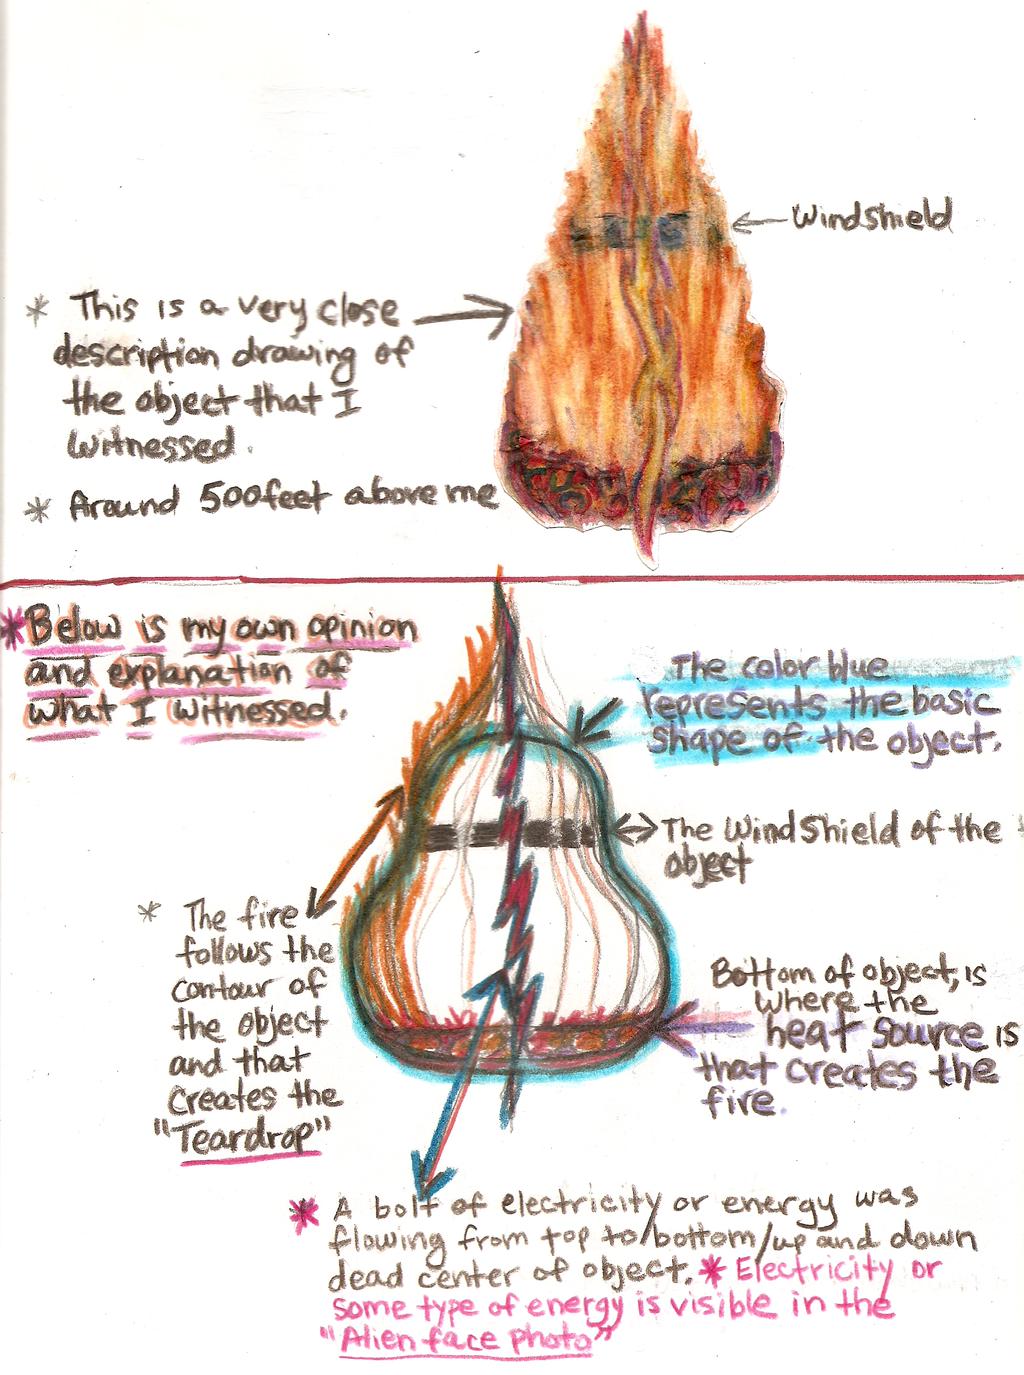 Windshield
* This is a very close
description drawing of
the object that I
witnessed.
* Around 500feet above me
* Below is my own opinion
and explanation of
what I witnessed.
The color blue
represents the basic
shape of the object.
The Windshield of the
object
* The fire
follows the
contour of
the object
and that
creates the
"Teardrop"
Bottom of object, is
where the
heat source is
that creates the
fire.
* A bolt of electricity or energy was
flowing from top to/bottom/up and down
dead center of object. * Electricity or
some type of energy is visible in the
"Alien face photo"